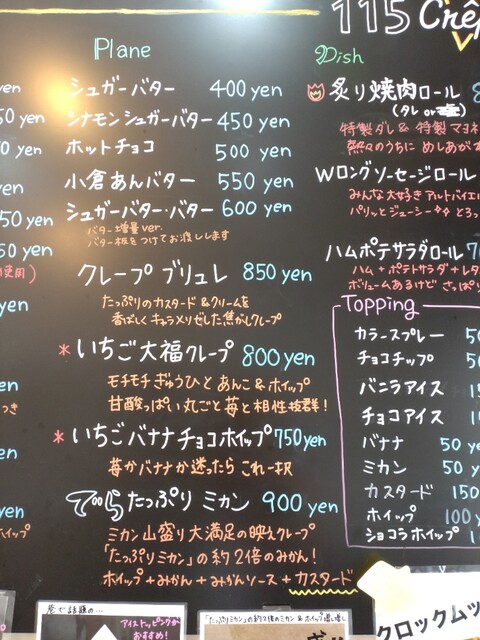 115 Crê
Plane
シュガーバター 400 yen
シナモンシュガーバター 450 yen
ホットチョコ 500 yen
小倉あんバター 550 yen
シュガーバター・バター 600 yen
バター増量ver.
バター板をつけてお渡しします
クレープ ブリュレ 850 yen
たっぷりのカスタード&クリームを
香ばしくキャラメリゼした焦がしクレープ
*いちご大福クレープ 800 yen
モチモチぎゅうひとあんこ&ホイップ
甘酸っぱい丸ごと苺と相性抜群!
*いちごバナナチョコホイップ 750 yen
苺かバナナか迷ったら これ一択
たっぷり ミカン 900 yen
ミカン山盛り大満足の映えクレープ
「たっぷりミカン」の約2倍のみかん!
ホイップ+みかん+みかんソース+カスタード
Dish
炙り焼肉ロール
(タレ or
特製ダレ& 特製マヨネ
熱々のうちに めしあが
Wロングソーセージロール
みんな大好きアルトバイエ
パリッとジューシー
ハムポテサラダロール
ハム+ポテトサラダ+レタ
ボリュームあるけど さっぱり
Topping
カラースプレー
チョコチップ
バニラアイス
チョコアイス
バナナ 50 ye
ミカン 50 y
カスタード 150
ホイップ 100 y
ショコラホイップ
yen
yen
50 yen
50 yen
使用)
yen
アイストッピングが
おすすめ!
クロックムッ